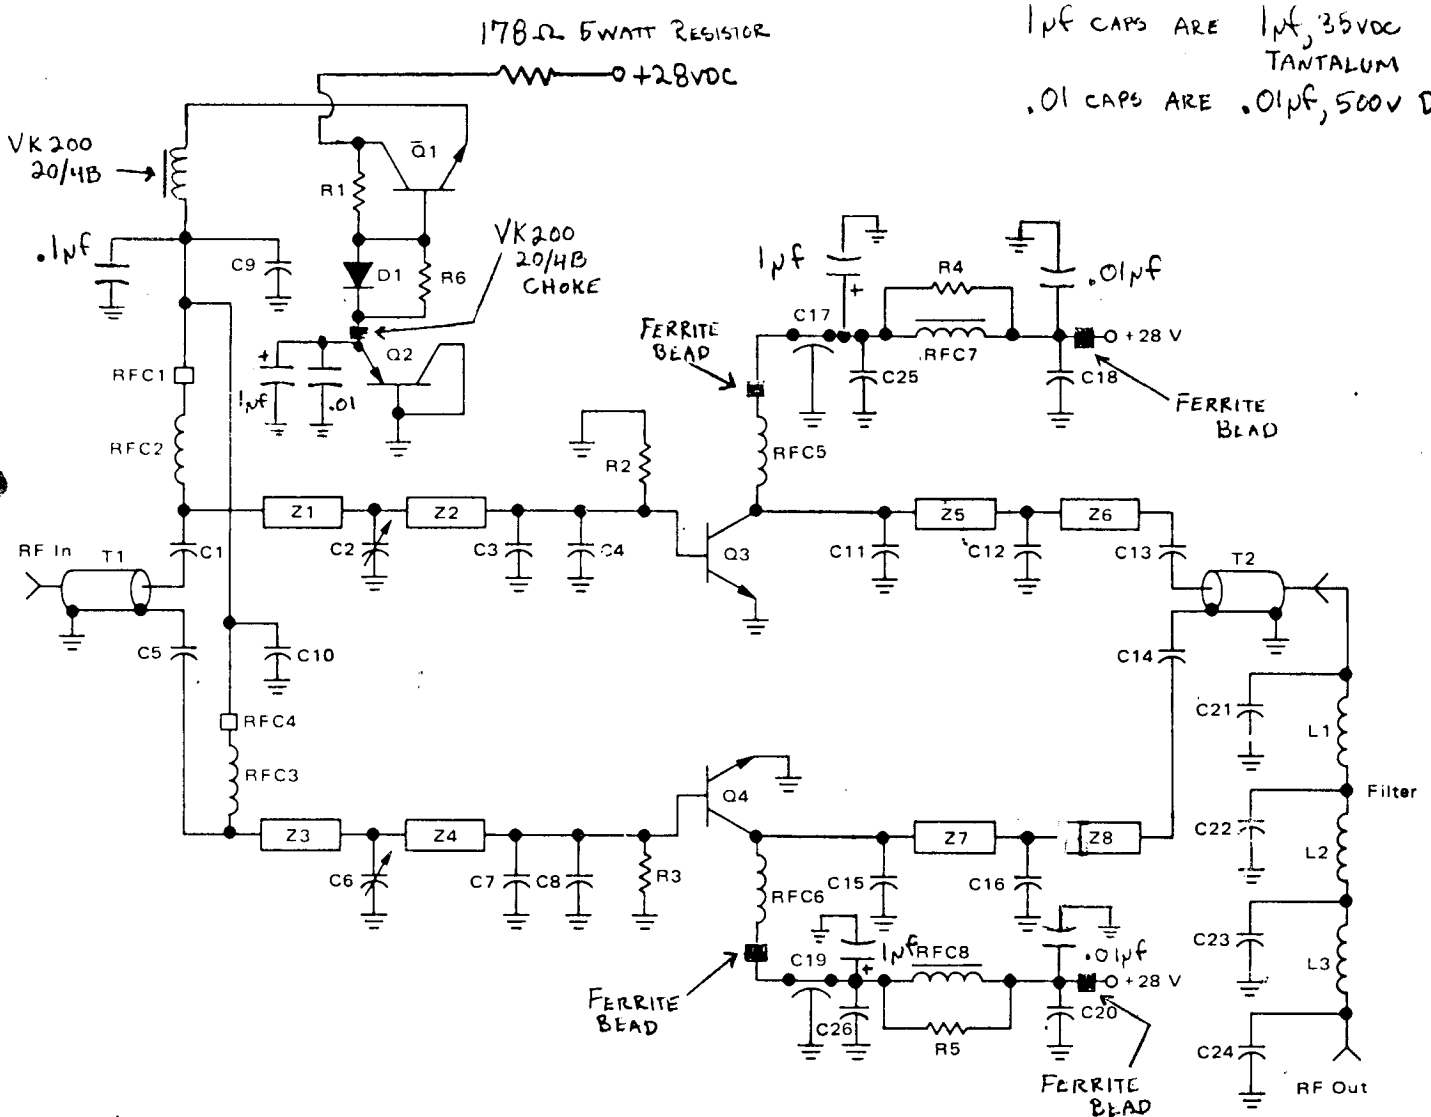 178Ω 5WATT RESISTOR
+28VDC
1µf CAPS ARE 1µf, 35VDC
TANTALUM
.01 CAPS ARE .01µf, 500V D
VK200
20/4B
Q1
R1
.1µf
C9
D1
R6
VK200
20/4B
CHOKE
Q2
+
1µf
.01
RFC1
RFC2
FERRITE
BEAD
1µf
+
C17
R4
RFC7
.01µf
+28 V
C25
C18
FERRITE
BEAD
RFC5
R2
Z1
Z2
Z5
Z6
RF In
T1
C1
C2
C3
C4
Q3
C11
C12
C13
T2
C5
C10
C14
RFC4
RFC3
C21
L1
Q4
Filter
Z3
Z4
Z7
Z8
C22
L2
C6
C7
C8
R3
RFC6
C15
C16
C23
L3
FERRITE
BEAD
C19
1µf
+
RFC8
.01µf
+28 V
C26
R5
C20
C24
FERRITE
BEAD
RF Out